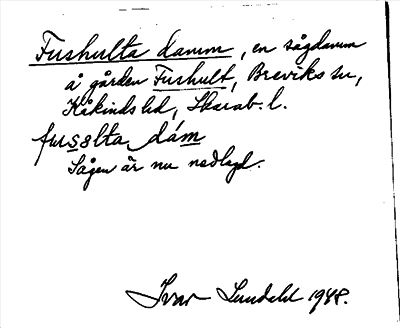 Fushulta damm, en sågdamm
å gården Fushult, Breviks sn,
Kåkinds hd, Skarab. l.
fusolta dám
Sågen är nu nedlagd.
Ivar Lundahl 1948.